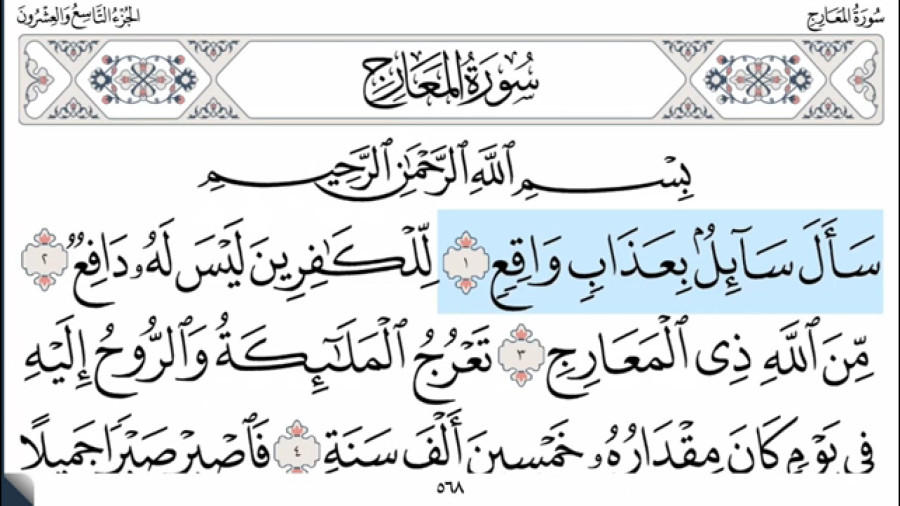 سُورَةُ المَعَارِجِ
الجُزْءُ التَّاسِعُ وَالعِشْرُونَ
سُورَةُ المَعَارِجِ
بِسْمِ ٱللَّهِ ٱلرَّحْمَٰنِ ٱلرَّحِيمِ
سَأَلَ سَآئِلُۢ بِعَذَابٍ وَاقِعٍ ١ لِّلْكَٰفِرِينَ لَيْسَ لَهُۥ دَافِعٌ ٢
مِّنَ ٱللَّهِ ذِى ٱلْمَعَارِجِ ٣ تَعْرُجُ ٱلْمَلَٰٓئِكَةُ وَٱلرُّوحُ إِلَيْهِ
فِى يَوْمٍ كَانَ مِقْدَارُهُۥ خَمْسِينَ أَلْفَ سَنَةٍ ٤ فَٱصْبِرْ صَبْرًا جَمِيلًا
٥٦٨